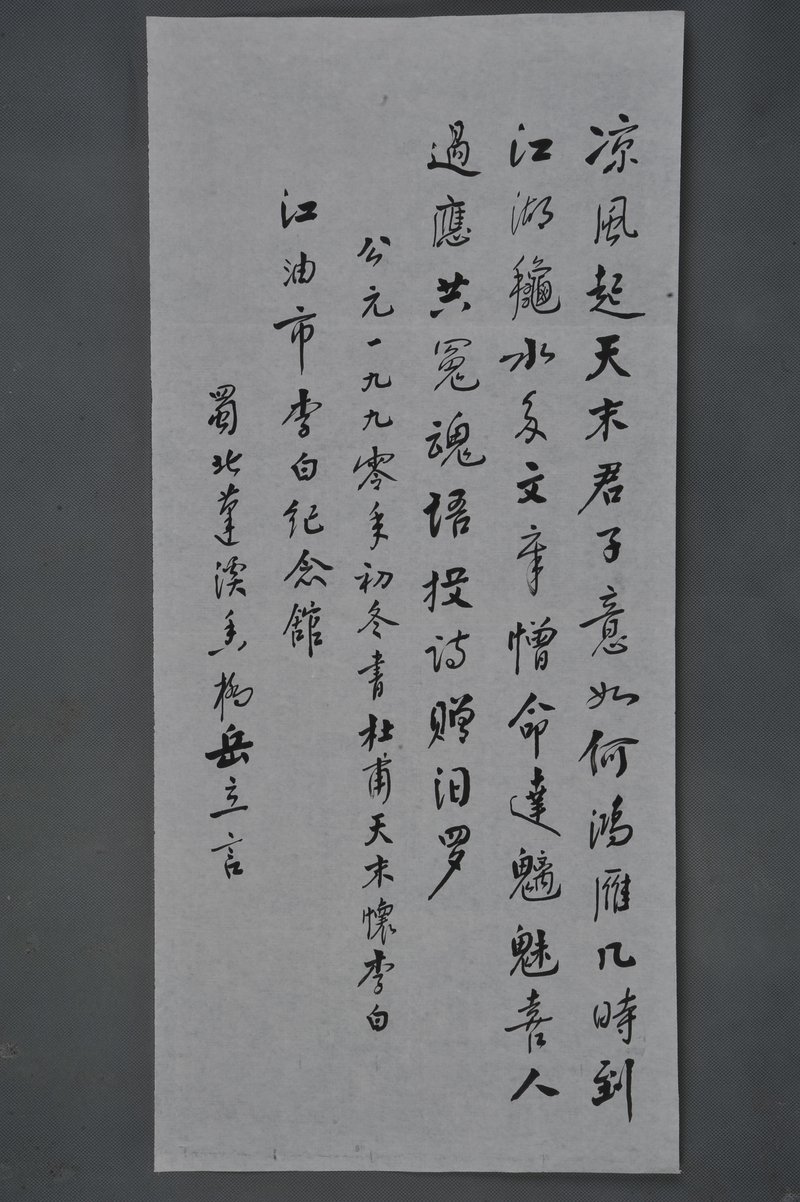 凉風起天末君子意如何鸿雁几時到
江湖龝水多文章憎命達魑魅喜人
過應共冤魂语投诗赠汨罗
公元一九九零年初冬書杜甫天末懷李白
江油市李白纪念館
蜀北蓬溪岳立言